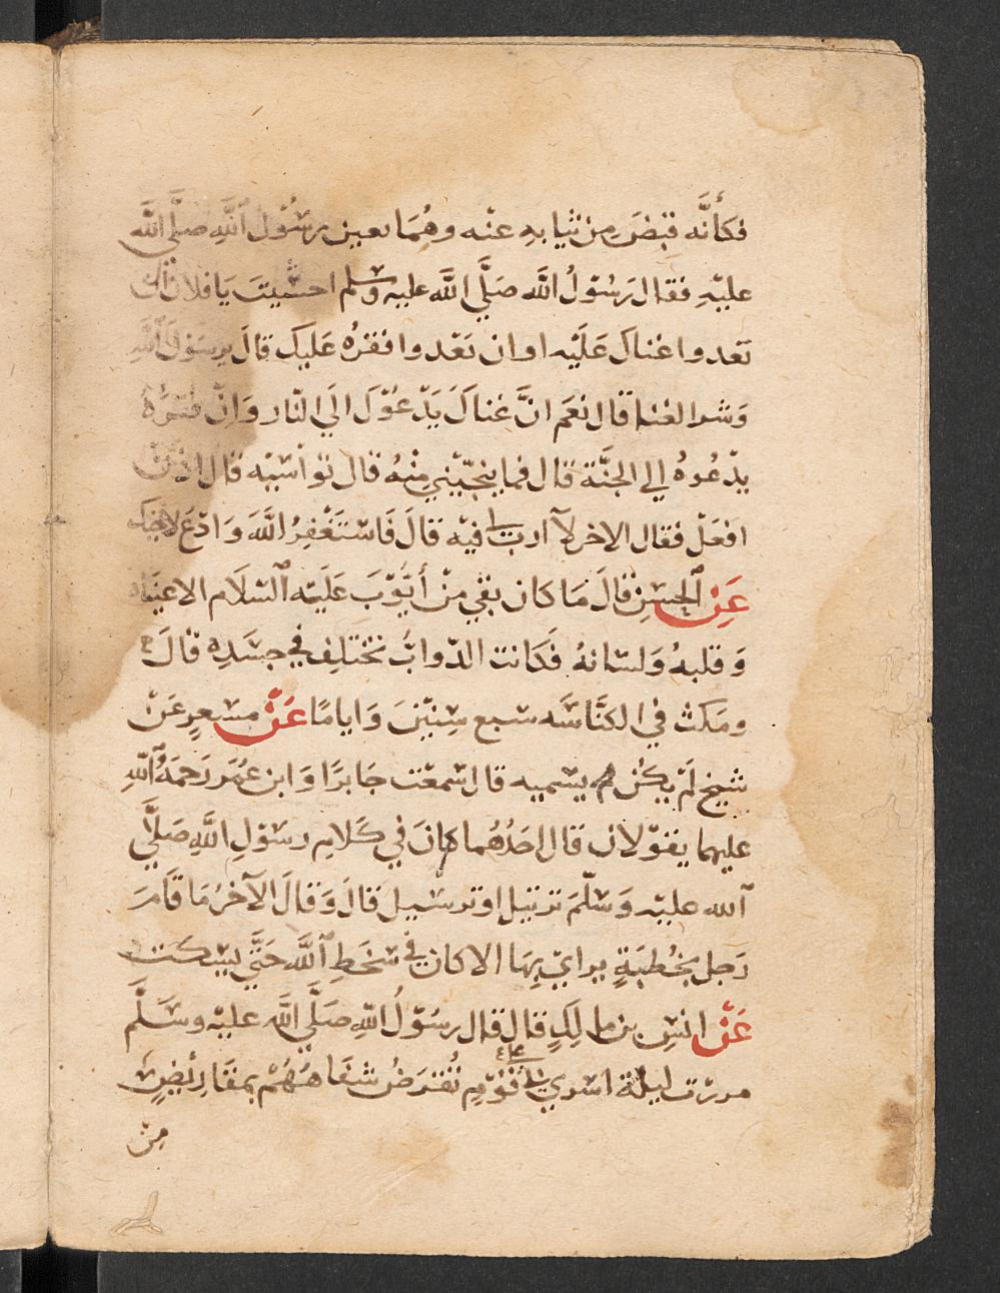 فكأنَّه قبضَ من ثيابه عنه وهُمَا بعين رسُول اللَّه صلَّى اللَّه
عليْهِ فقال رَسُوْلُ اللَّه صَلَّي اللَّه عليه وسلم احشيتَ يَا فلان ان
تعدوا غناكَ عَلَيْه او ان تعْدوا فقرُه عَليك قالَ يرسَولَ اللَّه
وَشر الغنا قال نعَم انَّ غناكَ يَدْعوْكَ الَي النّار وَانّ فقرُهُ
يدْعُوهُ الي الجنَّة قال فما ينجّيْني منْهُ قال تواسْيه قال اذن
افعَلْ فقال الاخر لآ اربَ لي فيْه قالَ فَاسْتَغْفِرُ اللَّهَ وَادْعَ لاخيك
عَنْ الحسَنِ قالَ مَا كَان بقي منْ أيّوْبَ عَليَه السّلَام الا عينَاه
وَقلبهُ وَلسَانهُ فَكَانت الدّوابُّ تختلِف في جسَدِه قالَ
ومَكثَ في الكنَّاسَه سبع سِنيْنَ وَايامًا عَنْ مسْعرٍ عَنْ
شيخ لَمْ يكُن يسْميه قال سْمعْت جَابرًا وَابن عُمَر رَحمَةُ اللَّهِ
عليهما يقوْلان قال احَدُهُما كانَ في كَلامِ رسوْلِ اللَّهِ صَلَّي
الله عليْه وَسَلّمَ ترتيل او ترسْيل قالَ وَقالَ الآخرُ مَا قَامَ
رَجل بخُطبَةٍ يراي بهَا الا كان في سَخَطِ اللَّه حَتَّي يسْكت
عَنْ انسِ بن مالِكٍ قال قال رسُوْلُ اللّهِ صَلَّي اللَّه عليْه وسَلَّم
مررْت ليلة اسْري بي علي قوْمِ تُقترَضُ شفَاهُهُمْ بمقَاريْضٍ
مِنْ